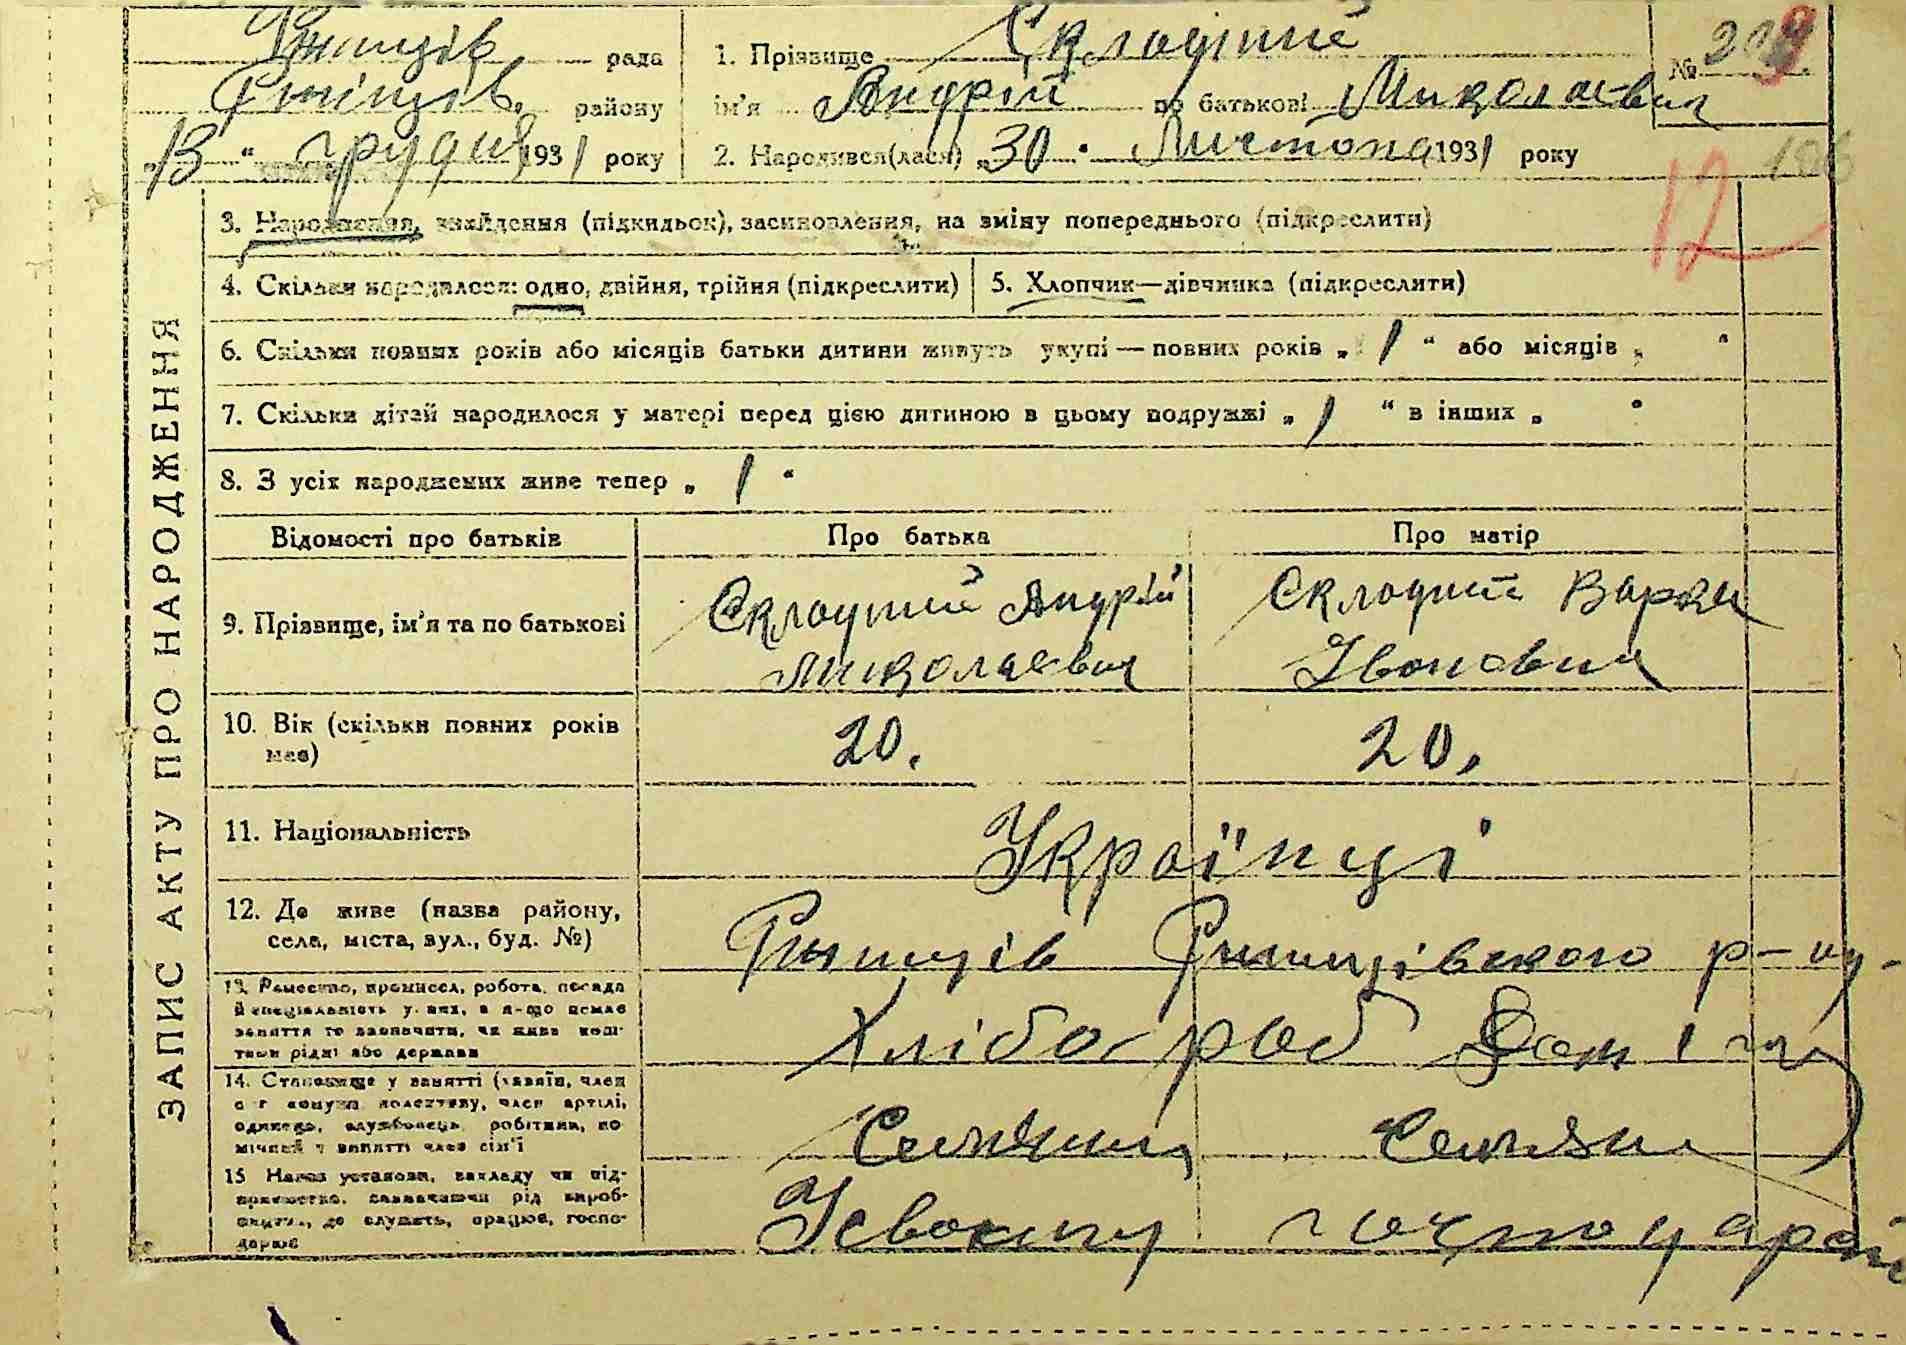 рада
району
„13“ грудня 1931 року
1. Прізвище Складний
ім'я Андрій по батькові Миколаевич
2. Народився(лася) „30“ Листопа 1931 року
№ 209
12
ЗАПИС АКТУ ПРО НАРОДЖЕННЯ
3. Народження, знайдення (підкидьок), засиновлення, на зміну попереднього (підкреслити)
4. Скільки народилося: одно, двійня, трійня (підкреслити)
5. Хлопчик—дівчинка (підкреслити)
6. Скільки повних років або місяців батьки дитини живуть укупі — повних років „1“ або місяців „ “
7. Скільки дітей народилося у матері перед цією дитиною в цьому подружжі „1“ в інших „ “
8. З усіх народжених живе тепер „1“
Відомості про батьків Про батька Про матір
9. Прізвище, ім'я та по батькові
Складний Андрій
Миколаевич
Складний
10. Вік (скільки повних років
має)
20. 20.
11. Національність Українці
12. Де живе (назва району,
села, міста, вул., буд. №)
13. Ремество, промисел, робота, посада
й спеціальність у них, а якщо немає
заняття то зазначити, чи живе кош-
тами рідні або держави
Хлібороб
14. Становище у занятті (хазяїн, член
с г комуни колективу, член артілі,
одинець, службовець, робітник, по
мічний у занятті член сім'ї
15 Назва установи, закладу чи під-
приємства, зазначаючи рід вироб-
ництва, де служить, працює, госпо-
дарює